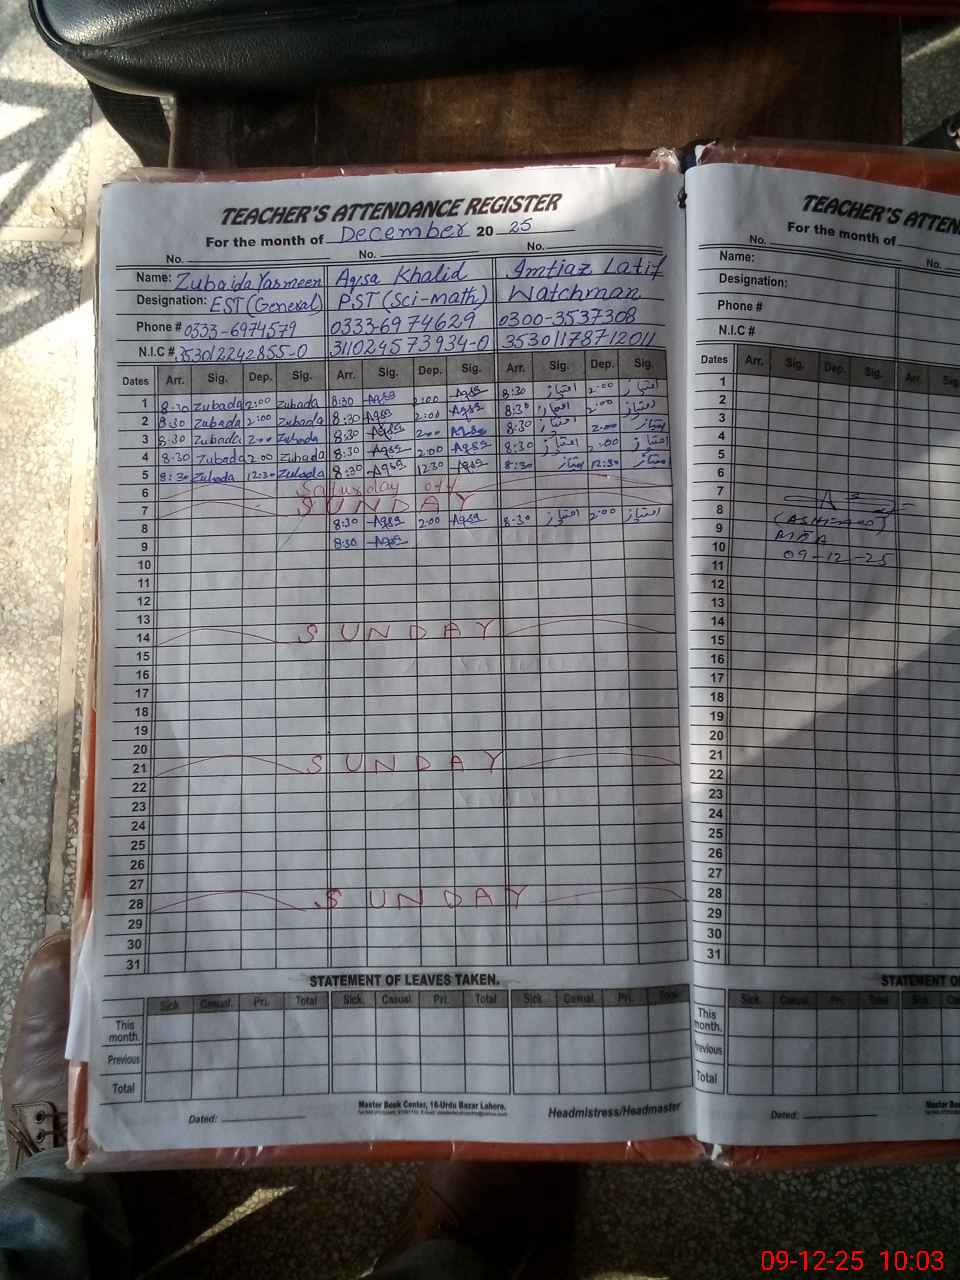 TEACHER'S ATTENDANCE REGISTER
For the month of December 20 25
No. No. No.
Name: Zubaida Yasmeen Aqsa Khalid Imtiaz Latif
Designation: EST (General) PST (Sci-math) Watchman
Phone # 0333-6974579 0333-6974629 0300-3537308
N.I.C # 353012242855-0 311024573934-0 35301178712011
Dates Arr. Sig. Dep. Sig. Arr. Sig. Dep. Sig. Arr. Sig. Dep. Sig.
1 8:30 Zubada 2:00 Zubada 8:30 Aqsa 2:00 Aqsa 8:30 امتیاز 2:00 امتیاز
2 8:30 Zubada 2:00 Zubada 8:30 Aqsa 2:00 Aqsa 8:30 امتیاز 2:00 امتیاز
3 8:30 Zubada 2:00 Zubada 8:30 Aqsa 2:00 Aqsa 8:30 امتیاز 2:00 امتیاز
4 8:30 Zubada 2:00 Zubada 8:30 Aqsa 2:00 Aqsa 8:30 امتیاز 2:00 امتیاز
5 8:30 Zubada 12:30 Zubada 8:30 Aqsa 12:30 Aqsa 8:30 امتیاز 12:30 امتیاز
6 Saturday off
7 SUNDAY
8 8:30 Aqsa 2:00 Aqsa 8:30 امتیاز 2:00 امتیاز
9 8:30 Aqsa
10
11
12
13
14 SUNDAY
15
16
17
18
19
20
21 SUNDAY
22
23
24
25
26
27
28 SUNDAY
29
30
31
STATEMENT OF LEAVES TAKEN.
Sick Casual. Pri. Total Sick Casual. Pri. Total Sick. Casual. Pri. Total
This month.
Previous
Total
Master Book Center, 16-Urdu Bazar Lahore.
Dated: Headmistress/Headmaster
TEACHER'S ATTEN
For the month of
No. No.
Name:
Designation:
Phone #
N.I.C #
Dates Arr. Sig. Dep. Sig. Arr. Sig.
1
2
3
4
5
6
7
8
9
10 MEA
11 09-12-25
12
13
14
15
16
17
18
19
20
21
22
23
24
25
26
27
28
29
30
31
STATEMENT O
Sick. Casual. Pri. Total Sick. Casual.
This month.
Previous
Total
Dated:
09-12-25 10:03